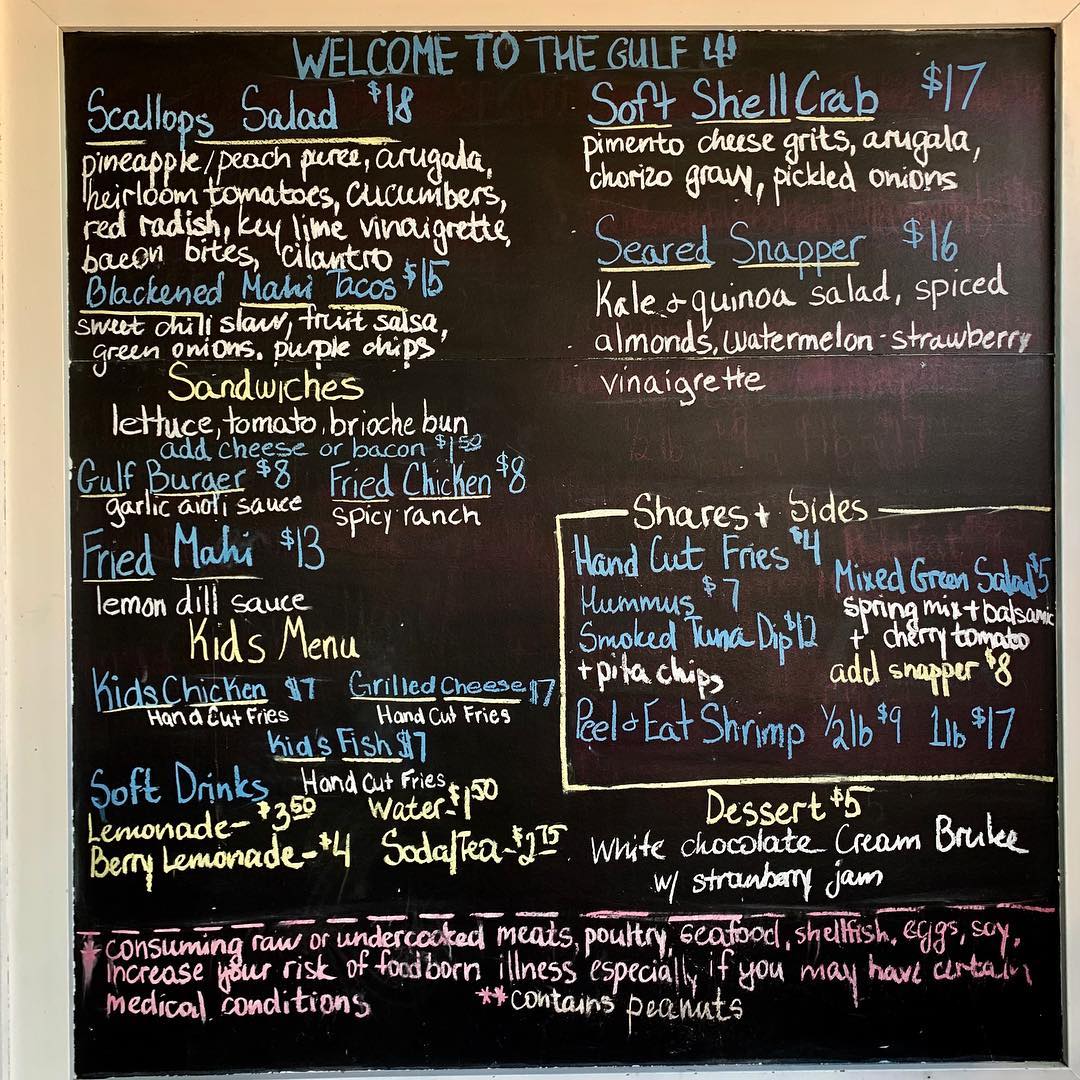 WELCOME TO THE GULF
Scallops Salad $18
pineapple/peach puree, arugala,
heirloom tomatoes, cucumbers,
red radish, key lime vinaigrette,
bacon bites, cilantro
Blackened Mahi Tacos $15
sweet chili slaw, fruit salsa,
green onions, purple chips
Sandwiches
lettuce, tomato, brioche bun
add cheese or bacon $1.50
Gulf Burger $8
garlic aioli sauce
Fried Chicken $8
spicy ranch
Fried Mahi $13
lemon dill sauce
Kids Menu
Kids Chicken $7
Hand Cut Fries
Grilled Cheese $7
Hand Cut Fries
Kid's Fish $7
Hand Cut Fries
Soft Drinks
Lemonade- $3 50
Water- $1 50
Berry Lemonade- $4
Soda/Tea- $2 75
Soft Shell Crab $17
pimento cheese grits, arugala,
chorizo gravy, pickled onions
Seared Snapper $16
Kale & quinoa salad, spiced
almonds, watermelon-strawberry
vinaigrette
Shares + Sides
Hand Cut Fries $4
Hummus $7
Smoked Tuna Dip $12
+ pita chips
Mixed Green Salad $5
spring mix + balsamic
+ cherry tomato
add snapper $8
Peel & Eat Shrimp 1/2lb $9 1lb $17
Dessert $5
White chocolate Cream Brulee
w/ strawberry jam
* consuming raw or undercooked meats, poultry, seafood, shellfish, eggs, soy,
increase your risk of foodborn illness especially if you may have certain
medical conditions **contains peanuts